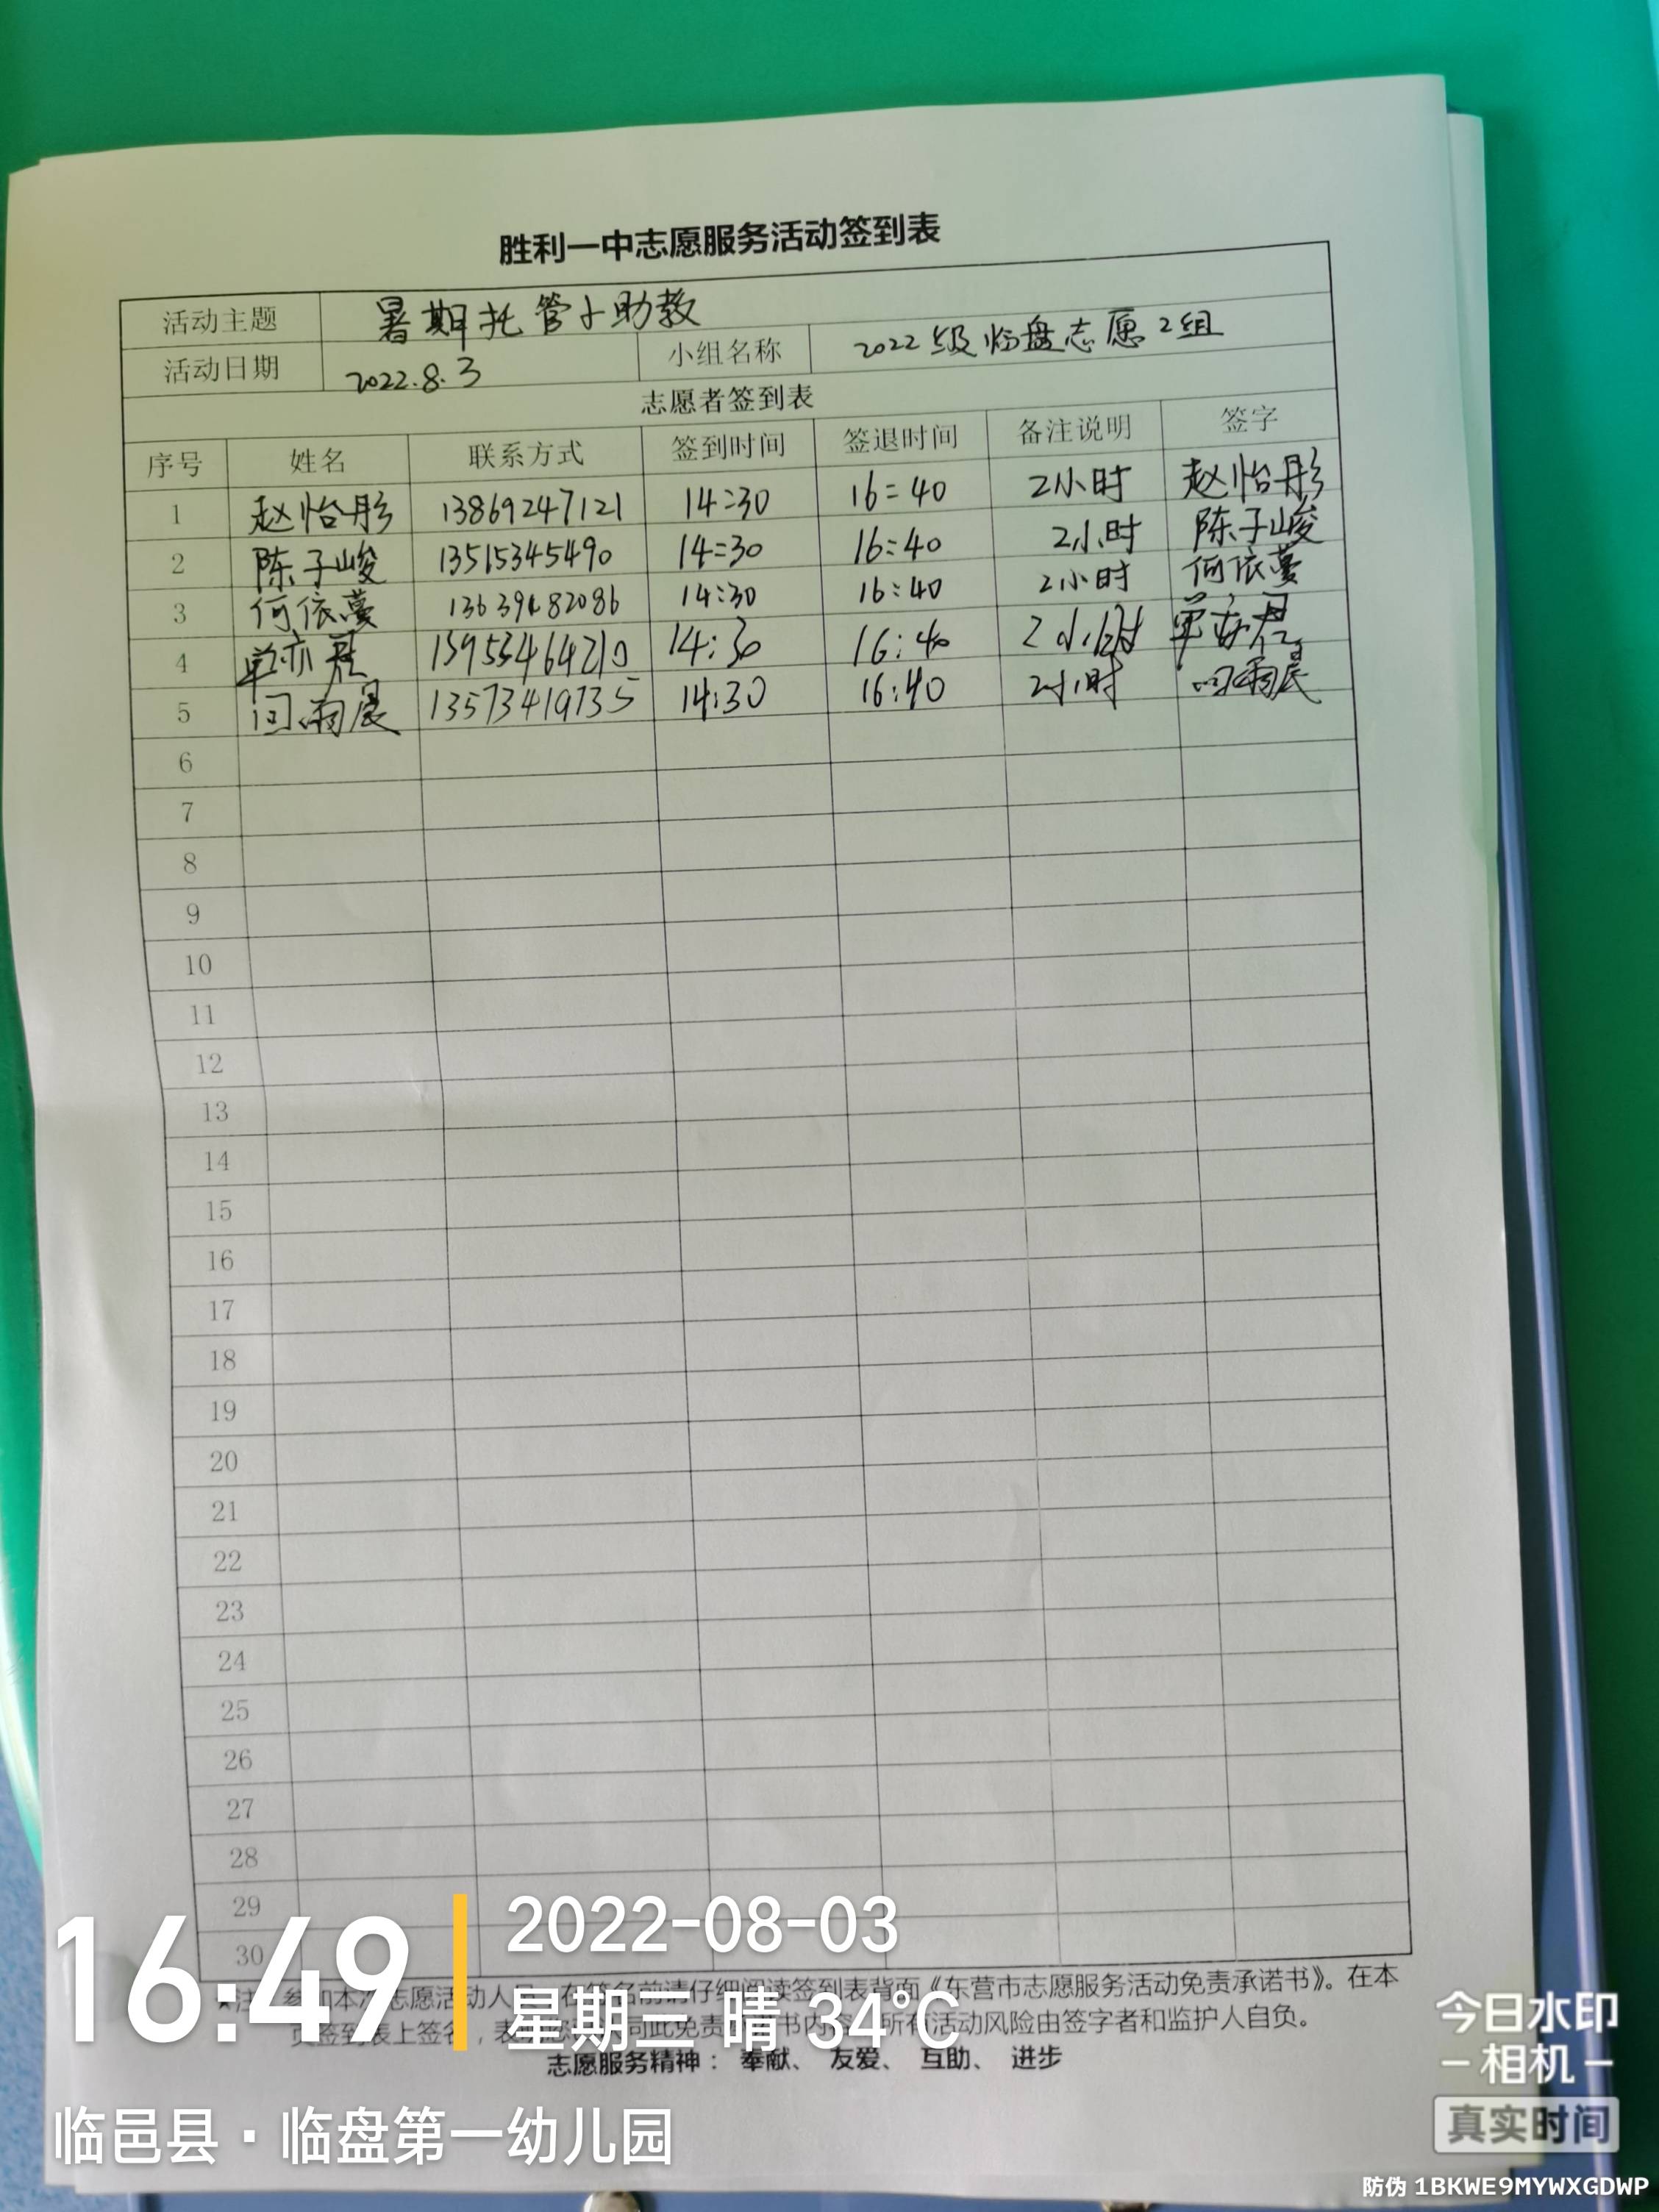 胜利一中志愿服务活动签到表
活动主题 暑期托管小助教
活动日期 2022.8.3 小组名称 2022级临盘志愿2组
志愿者签到表
序号 姓名 联系方式 签到时间 签退时间 备注说明 签字
1 赵怡彤 13869247121 14:30 16:40 2小时 赵怡彤
2 陈子峻 13515345490 14:30 16:40 2小时 陈子峻
3 何依蔓 14:30 16:40 2小时 何依蔓
4 单亦君 13953464210 14:30 16:40 2小时 单亦君
5 闫雨晨 13573419735 14:30 16:40 2小时 闫雨晨
6
7
8
9
10
11
12
13
14
15
16
17
18
19
20
21
22
23
24
25
26
27
28
29
30
*注:参加本次志愿活动人员,在签名前请仔细阅读签到表背面《东营市志愿服务活动免责承诺书》。在本
页签到表上签名,表 同此免责 书内容 所有活动风险由签字者和监护人自负。
志愿服务精神: 奉献、 友爱、 互助、 进步
16:49
2022-08-03
星期三 晴 34°C
临邑县·临盘第一幼儿园
今日水印
-相机-
真实时间
防伪 1BKWE9MYWXGDWP